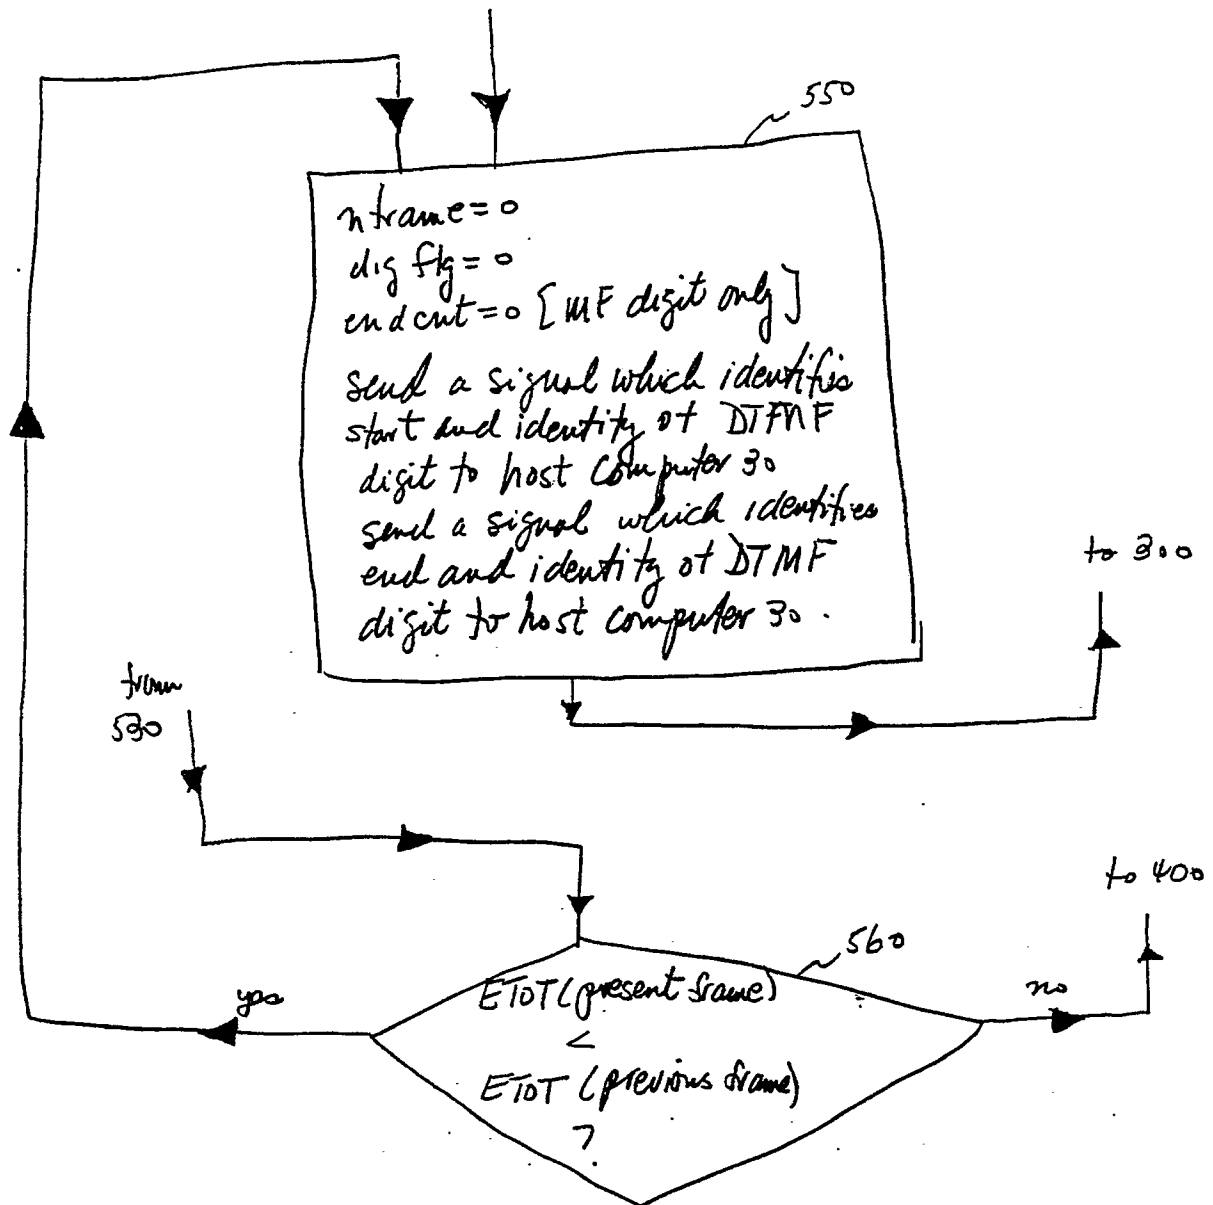 550
nframe=0
digflg=0
endcnt=0 [MF digit only]
send a signal which identifis
start and identity of DTMF
digit to host computer 30
send a signal which identifies
end and identity of DTMF
digit to host computer 30.
to 300
from
530
to 400
560
ETOT(present frame)
<
ETOT (previous frame)
?
yes
no